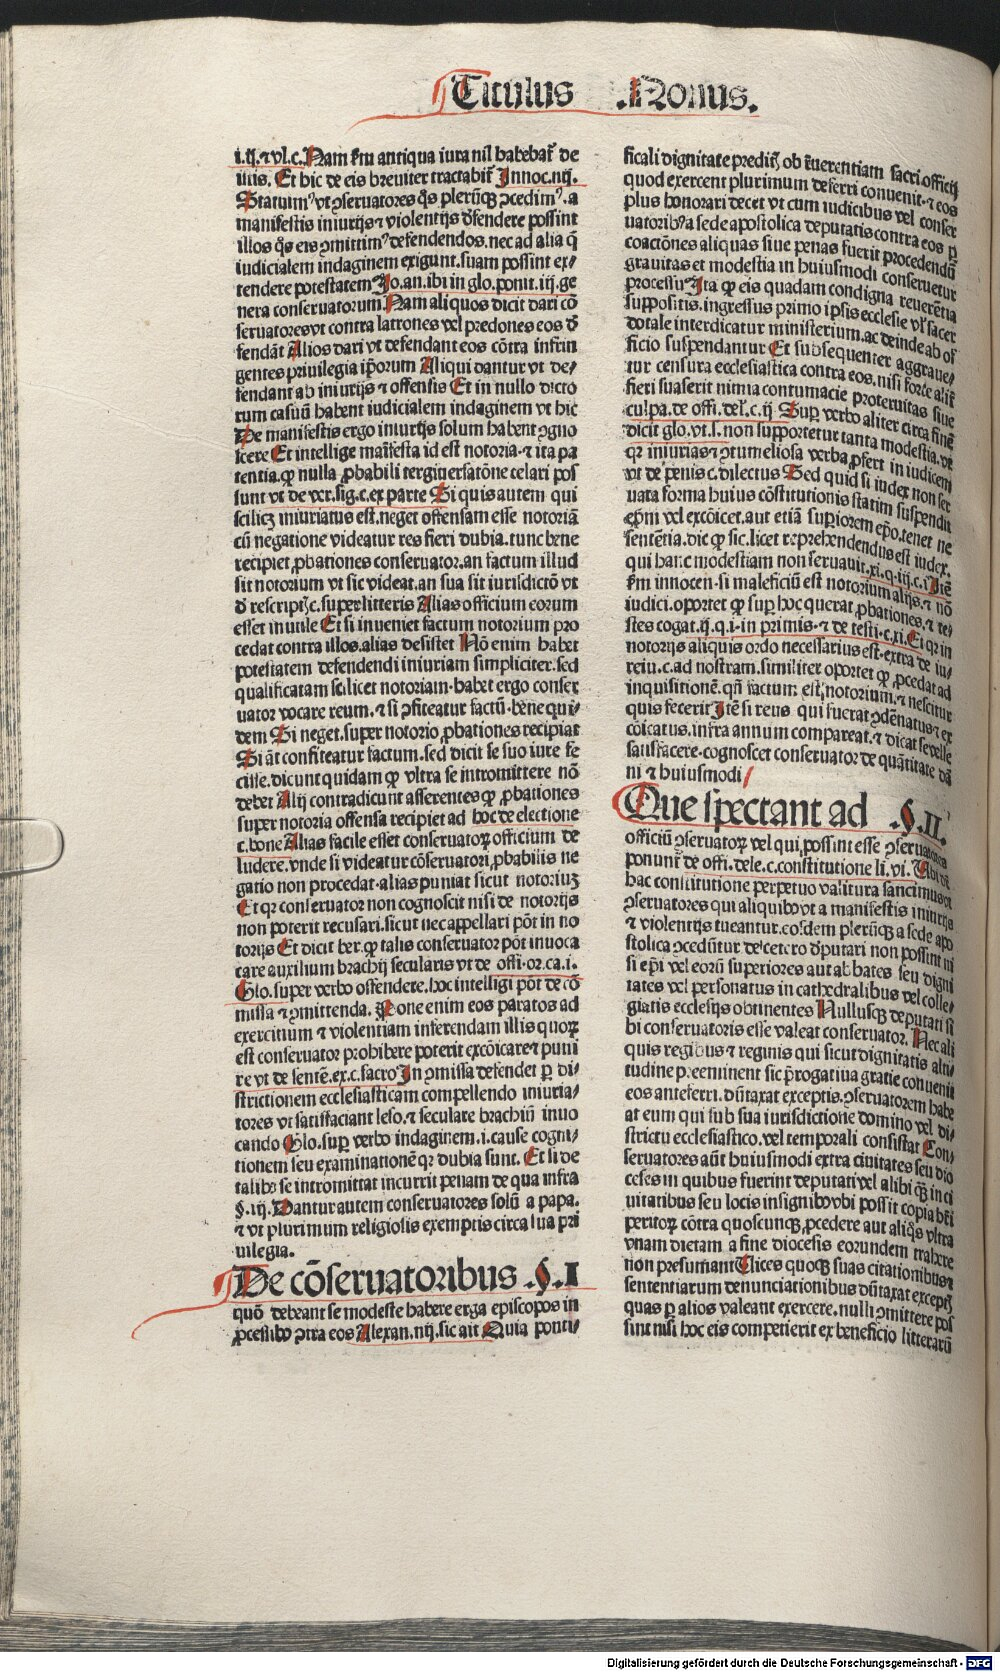 Titulus .Nonus.
i.ij.⁊ vl.c. Nam ẜm antiqua iura nil habebat̉ de
iuis. Et hic de eis breuiter tractabit̉ Innoc.iiij.
Statuimꝰ vt ꝯseruatores q̊s pleruqꝫ ꝯcedimꝰ.a
manifestis iniurijs ⁊ violentijs defendere possint
illos q̊s eis ꝯmittimꝰ defendendos.nec ad alia q̄
iudicialem indaginem exigunt.suam possint ex⸗
tendere potestatem Jo.an.ibi in glo.ponit.iij.ge
nera conseruatorum. Nam aliquos dicit dari cō
seruatores vt contra latrones vel predones eos d̄
fendāt Alios dari vt defendant eos cōtra infrin
gentes priuilegia ip̄orum Aliqui dantur vt de⸗
fendant ab iniurijs ⁊ offensis Et in nullo dicto
rum casuū habent iudicialem indaginem vt hic
De manifestis ergo iniurijs solum habent ꝯgno
scere Et intellige māifesta id est notoria.⁊ ita pa
tentia.ꝙ nulla ꝓbabili terginersatōne celari pos
sunt vt de ver.sig.c.ex parte Si quis autem qui
scilicꝫ iniuriatus est.neget offensam esse notoriā
cū negatione videatur res fieri dubia.tunc bene
recipiet ꝓbationes conseruator.an factum illud
sit notorium vt sic videat.an sua sit iurisdictō vt
d̄ rescript̄.c.super litteris Alias officium eorum
esset inutile Et si inueniet factum notorium pro
cedat contra illos.alias desistet Nō enim habet
potestatem defendendi iniuriam simpliciter.sed
qualificatam scilicet notoriam.habet ergo conser
uator vocare reum.⁊ si ꝯfiteatur factū.bene qui⸗
dem Si neget.super notorio ꝓbationes recipiat
Si āt confiteatur factum.sed dicit se suo iure fe
cisse.dicunt quidam ꝙ vltra se intromittere nō
debet Alij contradicunt asserentes ꝙ ꝓbationes
super notoria offensa recipiet ad hoc de electione
c.bone Alias facile esset conseruatoꝝ officium de
ludere.vnde si videatur cōseruatori ꝓbabilis ne
gatio non procedat.alias puniat sicut notoriuꝫ
Et qꝛ conseruator non cognoscit nisi de notorijs
non poterit recusari.sicut nec appellari pōt in no
torijs Et dicit ber.ꝙ talis conseruator pōt inuoca
care auxilium brachij secularis vt de offi.or.ca.i.
Glo.super verbo offendere.hoc intelligi pōt de cō
missa ⁊ ꝯmittenda. Pone enim eos paratos ad
exercitium ⁊ violentiam inferendam illis quoꝝ
est conseruator prohibere poterit excōicare ⁊ puni
re vt de sentē.ex.c.sacro In ꝯmissa defendet ꝑ di⸗
strictionem ecclesiasticam compellendo iniuria⸗
tores vt satisfaciant leso.⁊ seculare brachiū inuo
cando Glo.suꝑ verbo indaginem.i.cause cogni⸗
tionem seu examinationē qꝛ dubia sunt. Et si de
talibꝰ se intromittat incurrit penam de qua infra
§.iij. Dantur autem conseruatores solū a papa.
⁊ vt plurimum religiosis exemptis circa sua pri
uilegia.
De cōseruatoribus .§.I
quō debeant se modeste habere erga episcopos in
ꝓcessibꝰ ꝯtra eos Alexan.iiij.sic ait Quia ponti⸗
ficali dignitate predit̄ ob reuerentiam sacri officij
quod exercent plurimum deferri conuenit.⁊ eos
plus honorari decet vt cum iudicibus vel conser
uatoribꝰ a sede apostolica deputatis contra eos ꝑ
coactōnes aliquas siue penas fuerit procedendū
grauitas et modestia in huiusmodi conseruetur
processu Ita ꝙ eis quadam condigna reuerētia
suppositis.ingressus primo ipsis ecclesie vł sacer
dotale interdicatur ministerium.ac deinde ab of
ficio suspendantur Et subsequenter aggraue⸗
tur censura ecclesiastica contra eos.nisi forte aliť
fieri suaserit nimia contumacie proteruitas siue
culpa.de offi.del̄.c.ij Suꝑ verbo aliter circa finē
dicit glo.vt s.non supportetur tanta modestia.vt
qꝛ iniurias ⁊ ꝯtumeliosa verba ꝓfert in iudicem
vt de penis c.dilectus Sed quid si iudex non ser
uata forma huius cōstitutionis statim suspendit
ep̄m vel excōicet.aut etiā superiorem ep̄o.tenet ne
sentētia.dic ꝙ sic.licet reprehendendus est iudex.
qui hanc modestiam non seruauit.xi.q.iij.c.i Itē
ẜm innocen.si maleficiū est notorium alijs.⁊ nō
iudici.oportet ꝙ suꝑ hoc querat ꝓbationes.⁊ te⸗
stes cogat.ij.q.i.in primis.⁊ de testi.c.xi. Et qꝛ in
notorijs aliquis ordo necessarius est.extra de iu⸗
reiu.c.ad nostram.similiter oportet ꝙ ꝓcedat ad
inquisitionē.qn̄ factum est notorium.⁊ nescitur
quis fecerit Itē si reus qui fuerat ꝯdēnatus ⁊ ex
cōicatus.infra annum compareat.⁊ dicat se velle
satisfacere.cognoscet conseruator de quātitate dā
ni ⁊ huiusmodi
Que spectant ad .§.II.
officiū ꝯseruatoꝝ vel qui possint esse ꝯseruatores
ponunt̉ de offi.dele.c.constitutione li.vi.
hac constitutione perpetuo valitura sancimus vt
ꝯseruatores qui aliquibꝰ vt a manifestis iniurijs
⁊ violentijs tueantur.eosdem pleruqꝫ a sede apo
stolica ꝯcedūtur de cetero deputari non possint ni
si ep̄i vel eorū superiores aut abbates seu digni
tates vel personatus in cathedralibus vel colle⸗
giatis ecclesijs obtinentes Nullusqꝫ deputati si
bi conseruatoris esse valeat conseruator. Nec ali
quis regibus ⁊ reginis qui sicut dignitatis alti⸗
tudine preeminent sic prerogatiua gratie conuenit
eos anteferri.dūtaxat exceptis.ꝯseruatorem habe
at eum qui sub sua iurisdictione domino vel di⸗
strictu ecclesiastico.vel temporali consistat Con⸗
seruatores aūt huiusmodi extra ciuitates seu dio
ceses in quibus fuerint deputati vel alibi qꝫ in ci
uitatibus seu locis insignibꝰ vbi possit copia hr̄i
peritoꝝ cōtra quoscunqꝫ ꝓcedere aut aliq̊s vltra
vnam dietam a fine diocesis eorundem trahere
non presumant Uices quoqꝫ suas citationibus ⁊
sententiarum denunciationibus dūtaxat exceptꝭ
quas ꝑ alios valeant exercere.nulli ꝯmittere pos
sint nisi hoc eis competierit ex beneficio litterarū
Digitalisierung gefördert durch die Deutsche Forschungsgemeinschaft - DFG